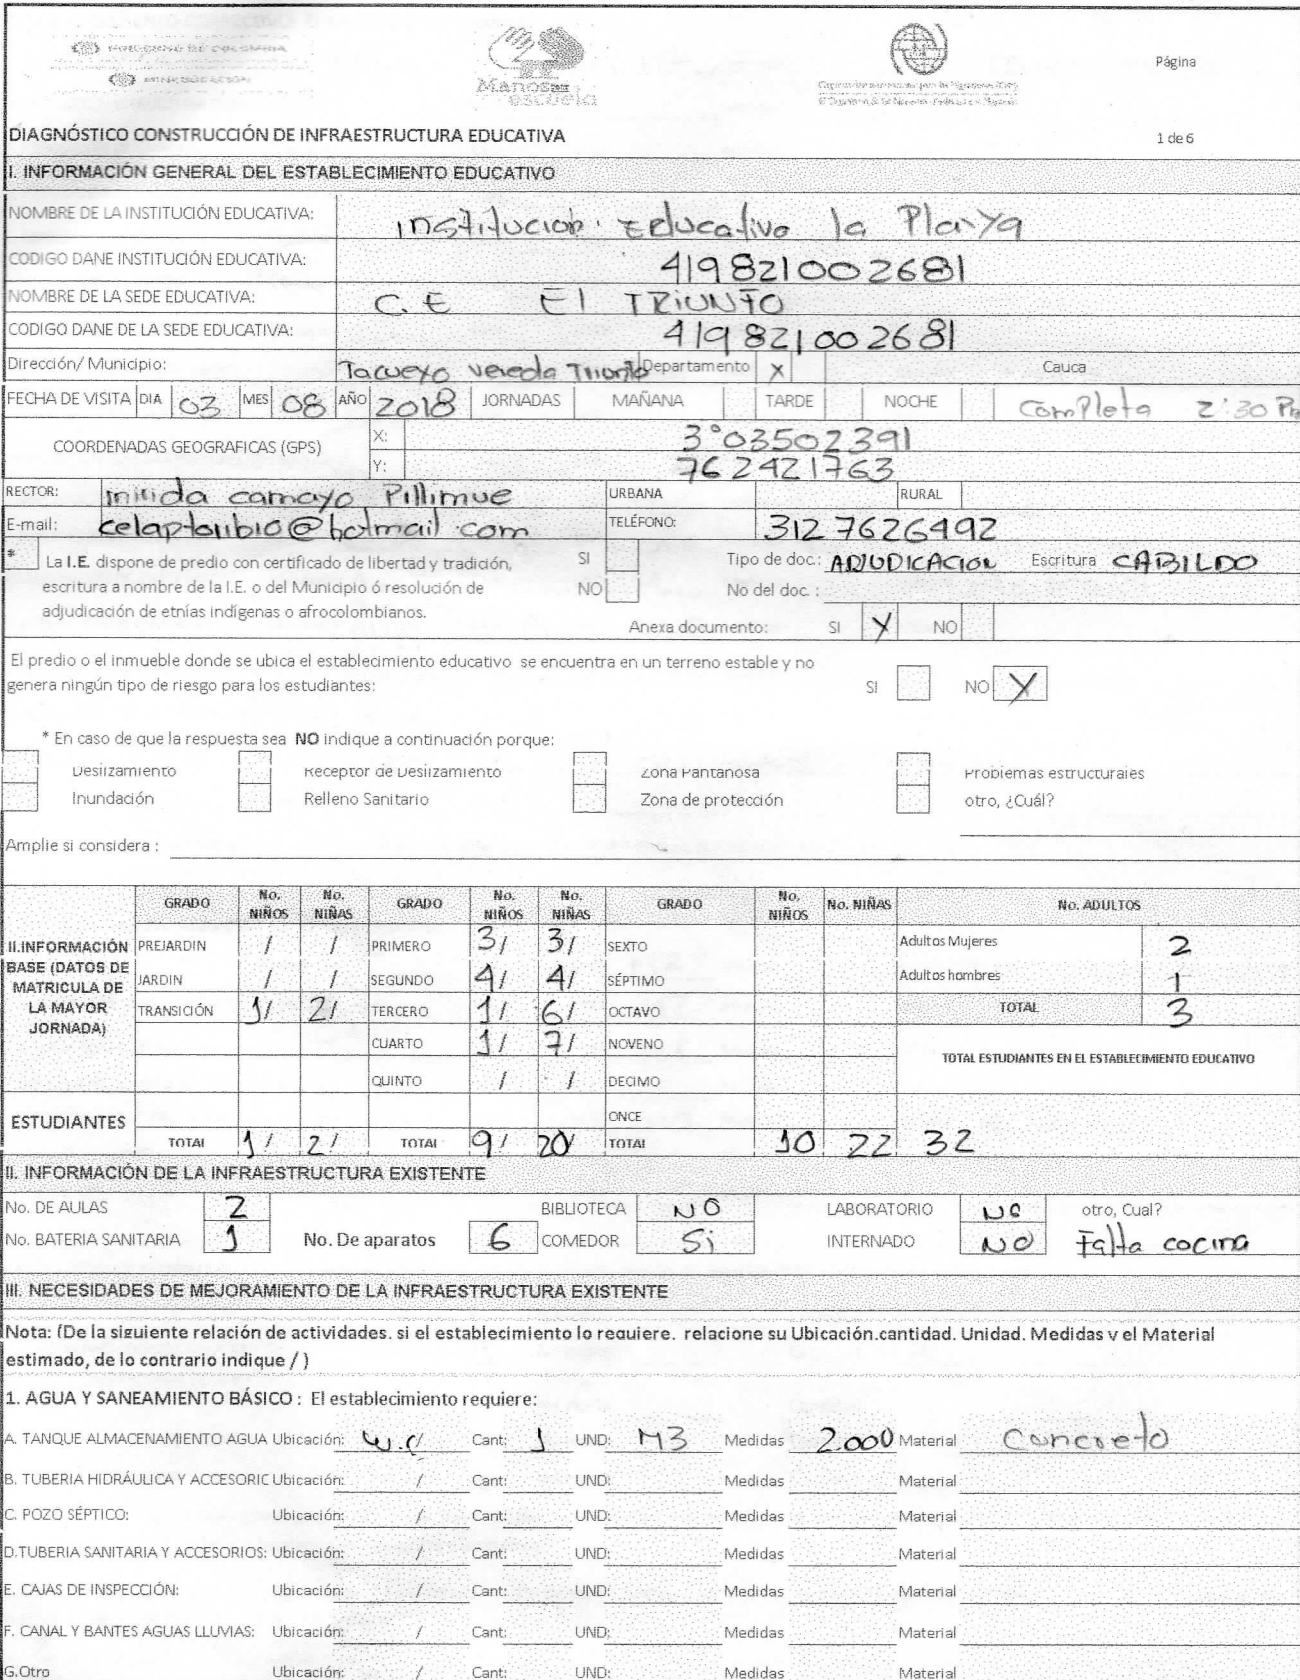 GOBIERNO DE COLOMBIA
MINEDUCACIÓN
Manos a la escuela
Página
DIAGNÓSTICO CONSTRUCCIÓN DE INFRAESTRUCTURA EDUCATIVA 1 de 6
I. INFORMACIÓN GENERAL DEL ESTABLECIMIENTO EDUCATIVO
NOMBRE DE LA INSTITUCIÓN EDUCATIVA: Institucion Educativa la Playa
CODIGO DANE INSTITUCIÓN EDUCATIVA: 419821002681
NOMBRE DE LA SEDE EDUCATIVA: C.E El TRIUNFO
CODIGO DANE DE LA SEDE EDUCATIVA: 419821002681
Dirección/ Municipio: Tacueyo vereda Triunfo Departamento X Cauca
FECHA DE VISITA DIA 03 MES 08 AÑO 2018 JORNADAS MAÑANA TARDE NOCHE Completa 2:30 Pm
COORDENADAS GEOGRAFICAS (GPS) X: 3°03502391
Y: 762421763
RECTOR: camayo Pillimue URBANA RURAL
E-mail: celaptoribio@hotmail.com TELÉFONO: 3127626492
* La I.E. dispone de predio con certificado de libertad y tradición, SI Tipo de doc.: ADJUDICACION Escritura CABILDO
escritura a nombre de la I.E. o del Municipio ó resolución de NO No del doc. :
adjudicación de etnías indígenas o afrocolombianos. Anexa documento: SI X NO
El predio o el inmueble donde se ubica el establecimiento educativo se encuentra en un terreno estable y no
genera ningún tipo de riesgo para los estudiantes: SI NO X
* En caso de que la respuesta sea NO indique a continuación porque:
Deslizamiento Receptor de Deslizamiento Zona Pantanosa Problemas estructurales
Inundación Relleno Sanitario Zona de protección otro, ¿Cuál?
Amplie si considera :
GRADO No. NIÑOS No. NIÑAS GRADO No. NIÑOS No. NIÑAS GRADO No. NIÑOS No. NIÑAS No. ADULTOS
II.INFORMACIÓN BASE (DATOS DE MATRICULA DE LA MAYOR JORNADA)
PREJARDIN / / PRIMERO 3/ 3/ SEXTO Adultos Mujeres 2
JARDIN / / SEGUNDO 4/ 4/ SÉPTIMO Adultos hombres 1
TRANSICIÓN 1/ 2/ TERCERO 1/ 6/ OCTAVO TOTAL 3
CUARTO 1/ 7/ NOVENO TOTAL ESTUDIANTES EN EL ESTABLECIMIENTO EDUCATIVO
QUINTO / / DECIMO
ESTUDIANTES ONCE
TOTAL 1/ 2/ TOTAL 9/ 20/ TOTAL 10 22 32
II. INFORMACIÓN DE LA INFRAESTRUCTURA EXISTENTE
No. DE AULAS 2 BIBLIOTECA NO LABORATORIO NO otro, Cual?
No. BATERIA SANITARIA 1 No. De aparatos 6 COMEDOR Si INTERNADO NO Falta cocina
III. NECESIDADES DE MEJORAMIENTO DE LA INFRAESTRUCTURA EXISTENTE
Nota: (De la siguiente relación de actividades. si el establecimiento lo requiere. relacione su Ubicación.cantidad. Unidad. Medidas y el Material
estimado, de lo contrario indique / )
1. AGUA Y SANEAMIENTO BÁSICO : El establecimiento requiere:
A. TANQUE ALMACENAMIENTO AGUA Ubicación: W.C/ Cant: 1 UND: M3 Medidas 2.000 Material Concreto
B. TUBERIA HIDRÁULICA Y ACCESORIC Ubicación: / Cant: UND: Medidas Material
C. POZO SÉPTICO: Ubicación: / Cant: UND: Medidas Material
D.TUBERIA SANITARIA Y ACCESORIOS: Ubicación: / Cant: UND: Medidas Material
E. CAJAS DE INSPECCIÓN: Ubicación: / Cant: UND: Medidas Material
F. CANAL Y BANTES AGUAS LLUVIAS: Ubicación: / Cant: UND: Medidas Material
G.Otro Ubicación: / Cant: UND: Medidas Material